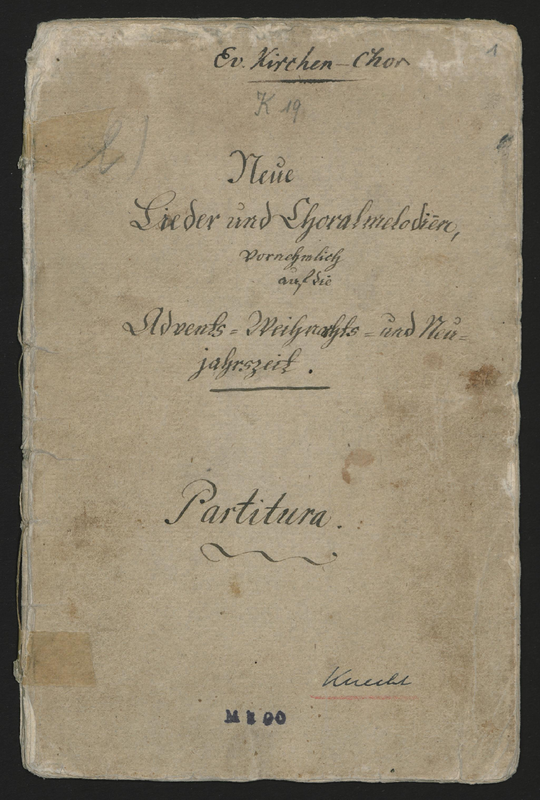 Ev. Kirchen-Chor
1
K 19
Neue
Lieder und Choralmelodien,
vornehmlich
auf die
Advents- Weihnachts- und Neu-
jahrszeit.
Partitura.
Knecht